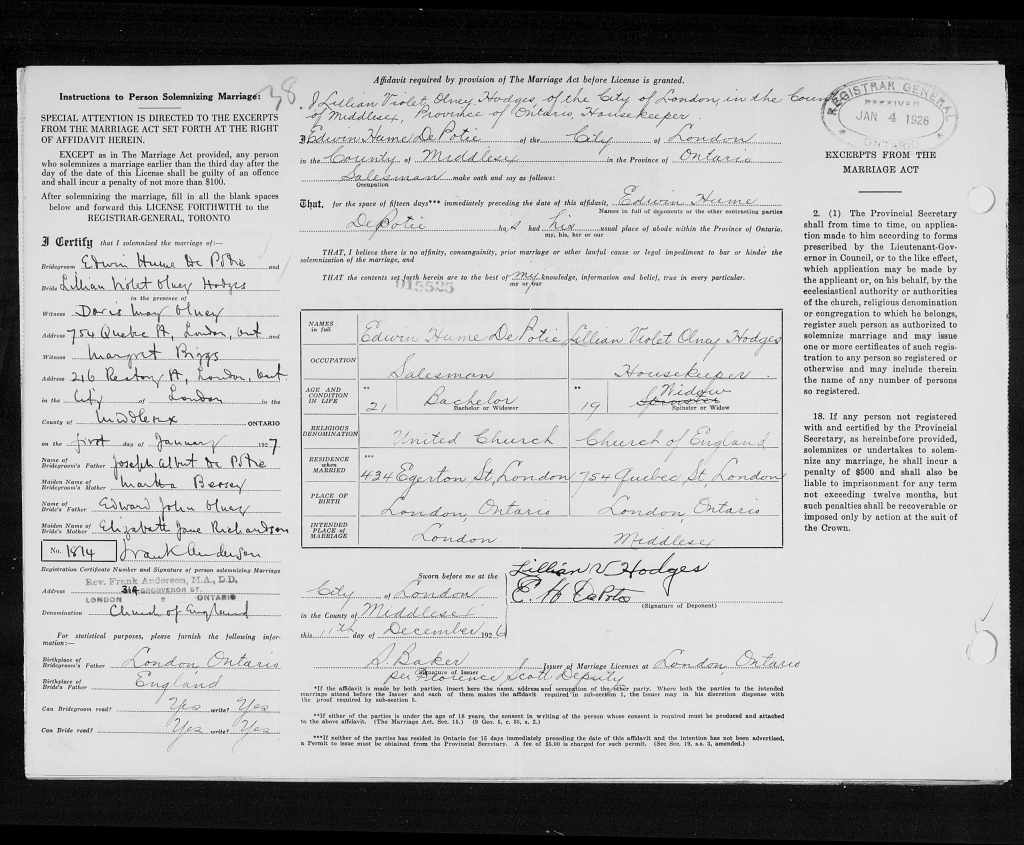 38
Instructions to Person Solemnizing Marriage:
SPECIAL ATTENTION IS DIRECTED TO THE EXCERPTS
FROM THE MARRIAGE ACT SET FORTH AT THE RIGHT
OF AFFIDAVIT HEREIN.
EXCEPT as in The Marriage Act provided, any person
who solemnizes a marriage earlier than the third day after
the day of the date of this License shall be guilty of an offence
and shall incur a penalty of not more than $100.
After solemnizing the marriage, fill in all the blank spaces
below and forward this LICENSE FORTHWITH to the
REGISTRAR-GENERAL, TORONTO
I Certify that I solemnized the marriage of:—
Bridegroom Edwin Hume De Potie and
Bride Lillian Violet Olney Hodges
in the presence of
Witness Doris May Olney
Address 754 Quebec St, London, Ont. and
Witness Margret Biggs
Address 216 Rectory St, London, Ont.
in the City of London in the
County of Middlesex ONTARIO
on the first day of January 1927
Name of Bridegroom's Father Joseph Albert De Potie
Maiden Name of Bridegroom's Mother Martha Bersey
Name of Bride's Father Edward John Olney
Maiden Name of Bride's Mother Elizabeth Jane Richardson
No. 1814 Frank Anderson
Registration Certificate Number and Signature of person solemnizing Marriage
Rev. Frank Anderson, M.A., D.D.
Address 314 GROSVENOR ST.
LONDON ONTARIO
Denomination Church of England
For statistical purposes, please furnish the following infor-
mation:—
Birthplace of Bridegroom's Father London, Ontario
Birthplace of Bride's Father England
Can Bridegroom read? Yes write? Yes
Can Bride read? Yes write? Yes
Affidavit required by provision of The Marriage Act before License is granted.
I Lillian Violet Olney Hodges, of the City of London, in the Coun
of Middlesex, Province of Ontario, Housekeeper.
I Edwin Hume De Potie of the City of London
in the County of Middlesex in the Province of Ontario
Salesman make oath and say as follows:
Occupation
That, for the space of fifteen days*** immediately preceding the date of this affidavit, Edwin Hume
Names in full of deponents or the other contracting parties
De Potie has had his usual place of abode within the Province of Ontario.
me, his, her or our
THAT, I believe there is no affinity, consanguinity, prior marriage or other lawful cause or legal impediment to bar or hinder the
solemnization of the marriage, and
THAT the contents set forth herein are to the best of my knowledge, information and belief, true in every particular.
me or our
015525
NAMES in full Edwin Hume De Potie Lillian Violet Olney Hodges
OCCUPATION Salesman Housekeeper.
AGE AND CONDITION IN LIFE ** 21 Bachelor ** 19 Widow Spinster
Bachelor or Widower Spinster or Widow
RELIGIOUS DENOMINATION United Church Church of England
RESIDENCE when MARRIED *** 434 Egerton St, London 754 Quebec St, London
PLACE OF BIRTH London, Ontario London, Ontario
INTENDED PLACE OF MARRIAGE London Middlesex
Sworn before me at the
City of London
in the County of Middlesex
this 11th day of December 1926
Lillian V Hodges
E. H DePotie
(Signature of Deponent)
A. Baker Issuer of Marriage Licenses at London, Ontario
Signature of Issuer
per Florence Scott Deputy
*If the affidavit is made by both parties, insert here the name, address and occupation of the other party. Where both the parties to the intended
marriage attend before the Issuer and each of them makes the affidavit required in sub-section 1, the Issuer may in his discretion dispense with
the proof required by sub-section 1.
**If either of the parties is under the age of 18 years, the consent in writing of the person whose consent is required must be produced and attached
to the above affidavit. (The Marriage Act. Sec. 15.) (9 Geo. 5, c. 35, s. 2.)
***If neither of the parties has resided in Ontario for 15 days immediately preceding the date of this affidavit and the intention has not been advertised,
a Permit to issue must be obtained from the Provincial Secretary. A fee of $5.00 is charged for such permit. (See Sec. 19, s.s. 3, amended.)
REGISTRAR GENERAL
RECEIVED
JAN 4 1926
ONTARIO
EXCERPTS FROM THE
MARRIAGE ACT
2. (1) The Provincial Secretary
shall from time to time, on applica-
tion made to him according to forms
prescribed by the Lieutenant-Gov-
ernor in Council, or to the like effect,
which application may be made by
the applicant or, on his behalf, by the
ecclesiastical authority or authorities
of the church, religious denomination
or congregation to which he belongs,
register such person as authorized to
solemnize marriage and may issue
one or more certificates of such regis-
tration to any person so registered or
otherwise and may include therein
the name of any number of persons
so registered.
18. If any person not registered
with and certified by the Provincial
Secretary, as hereinbefore provided,
solemnizes or undertakes to solem-
nize any marriage, he shall incur a
penalty of $500 and shall also be
liable to imprisonment for any term
not exceeding twelve months, but
such penalties shall be recoverable or
imposed only by action at the suit of
the Crown.